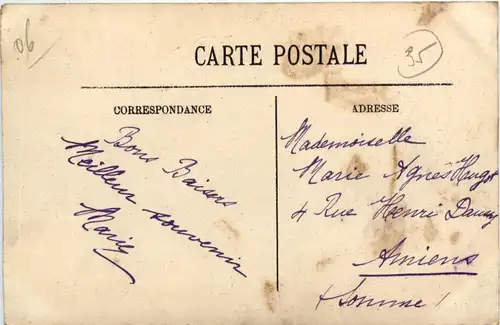 06
35
CARTE POSTALE
CORRESPONDANCE
Bons Baisers
Meilleur souvenir
Marie
ADRESSE
Mademoiselle
Marie Agnès Hugot
4 Rue Henri Daussy
Amiens
(Somme)